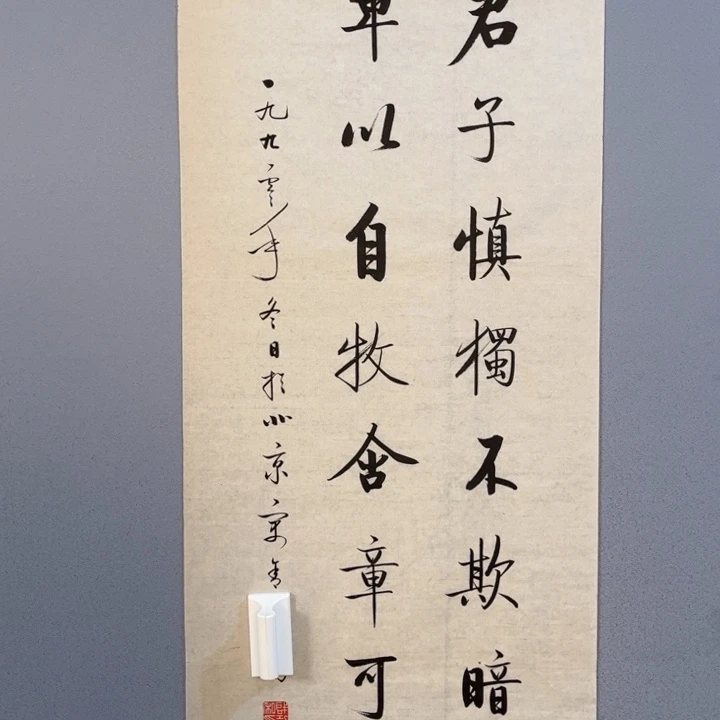 君子慎獨不欺暗
卑以自牧含章可
一九九零年冬日於北京寓舍